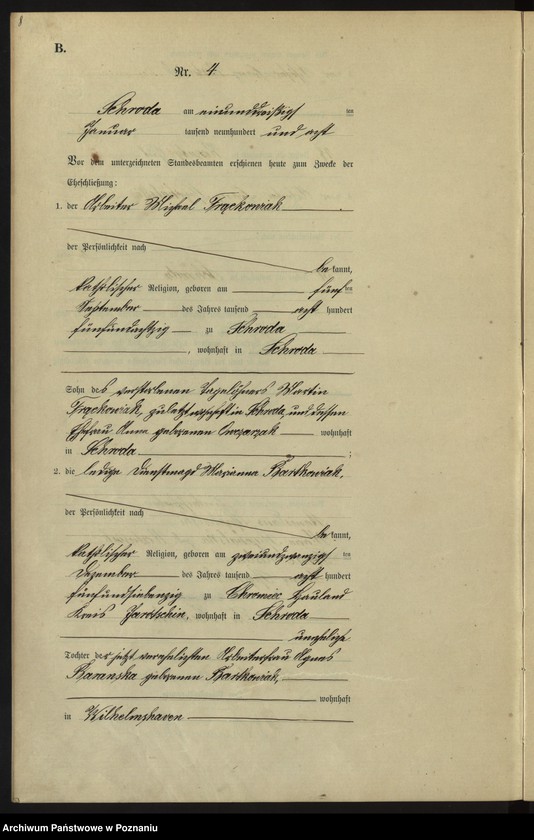 B.
Nr. 4.
Schroda am einunddreißigsten
Januar tausend neunhundert und acht
Vor dem unterzeichneten Standesbeamten erschienen heute zum Zwecke der
Eheschließung:
1. der Arbeiter Michael Frąckowiak
der Persönlichkeit nach
bekannt,
katholischer Religion, geboren am fünften
September des Jahres tausend acht hundert
fünfundachtzig zu Schroda
, wohnhaft in Schroda
Sohn des verstorbenen Tagelöhners Martin
Frąckowiak, zuletzt wohnhaft in Schroda, und dessen
Ehefrau Anna geborenen Owczarzak wohnhaft
in Schroda ;
2. die ledige Dienstmagd Marianna Bartkowiak,
der Persönlichkeit nach
bekannt,
katholischer Religion, geboren am zweiundzwanzigsten
Dezember des Jahres tausend acht hundert
fünfundsiebenzig zu Chromiec Hauland
Kreis Jarotschin, wohnhaft in Schroda
uneheliche
Tochter der jetzt verehelichten Arbeiterfrau Agnes
Baranska geborenen Bartkowiak,
wohnhaft
in Wilhelmshaven
Archiwum Państwowe w Poznaniu